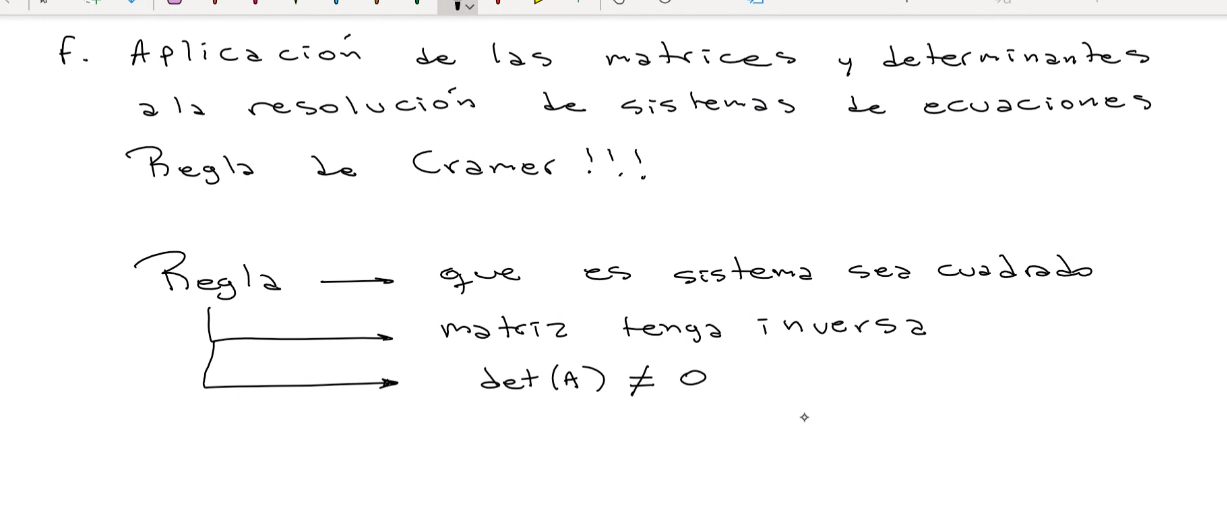 f. Aplicación de las matrices y determinantes
a la resolución de sistemas de ecuaciones
Regla de Cramer !!!
Regla → que es sistema sea cuadrado
→ matriz tenga inversa
→ det(A) ≠ 0